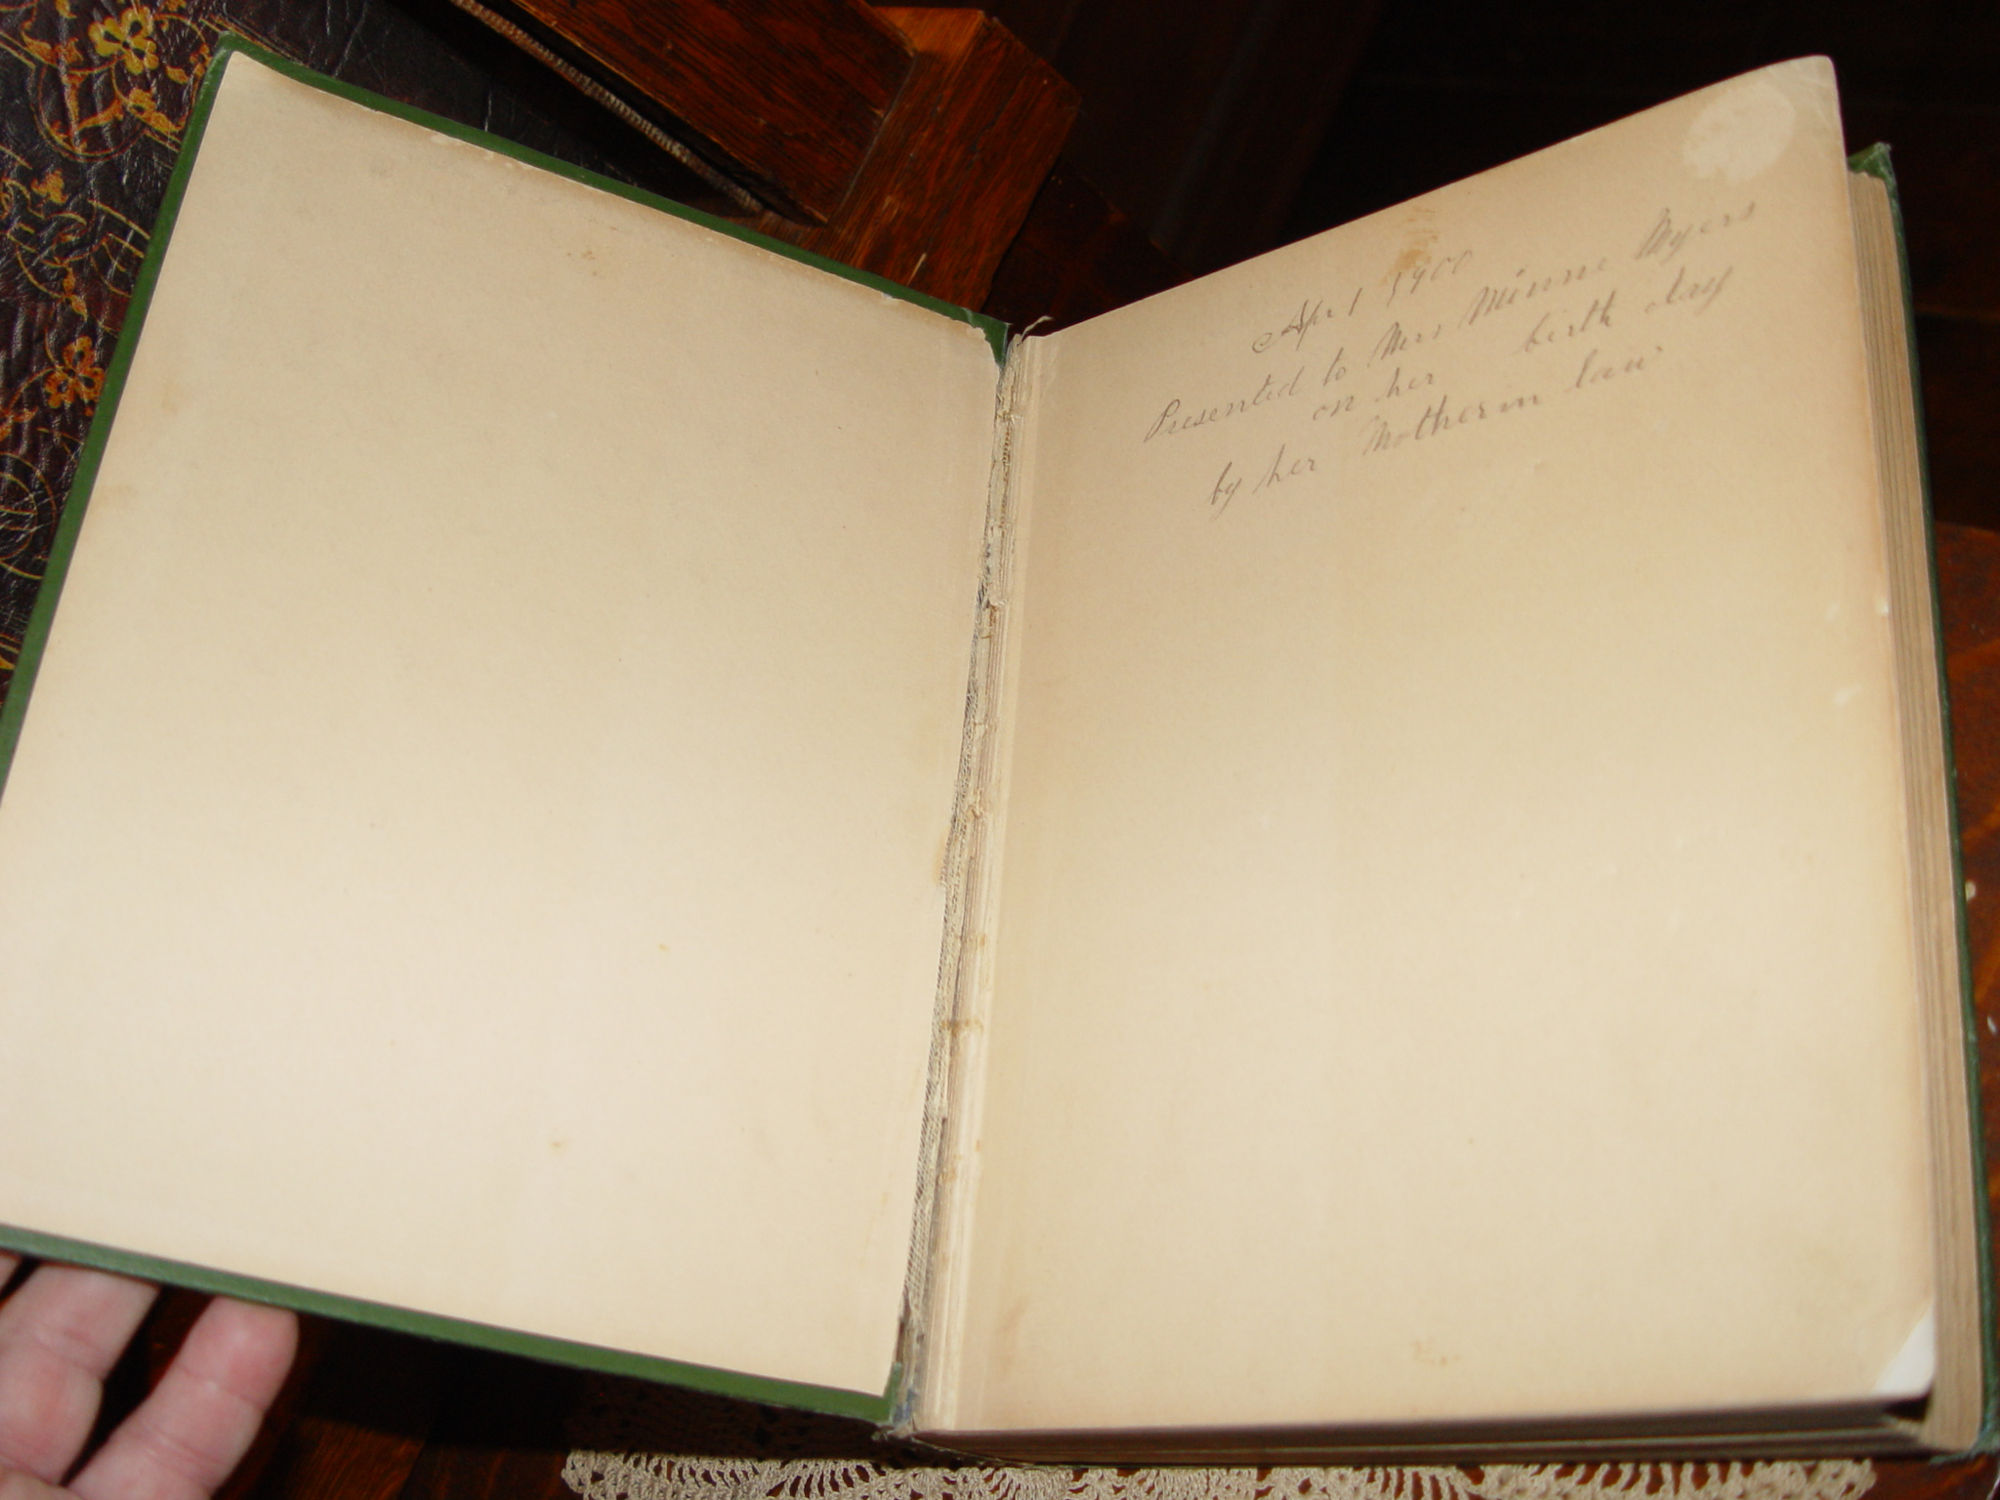 Apr 1 1900
Presented to Mrs Minnie Myers
on her birth day
by her Mother in law